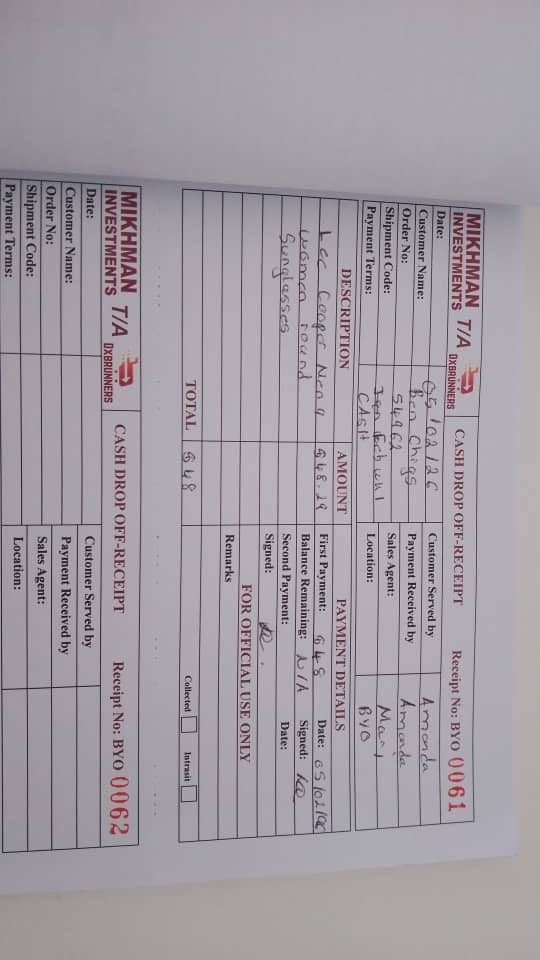 MIKHMAN INVESTMENTS T/A DXBRUNNERS CASH DROP OFF-RECEIPT Receipt No: BYO 0061
Date: 05/02/26 Customer Served by Amanda
Customer Name: Ben Chigs Payment Received by Amanda
Order No: 54962 Sales Agent:
Shipment Code: Location: BYO
Payment Terms: CASH
DESCRIPTION AMOUNT PAYMENT DETAILS
Lee Cooper Men & $48.29 First Payment: $48 Date: 05/02/26
women round Balance Remaining: N/A Signed:
Sunglasses Second Payment: Date:
Signed:
FOR OFFICIAL USE ONLY
Remarks
TOTAL $48 Collected Intrasit
MIKHMAN INVESTMENTS T/A DXBRUNNERS CASH DROP OFF-RECEIPT Receipt No: BYO 0062
Date: Customer Served by
Customer Name: Payment Received by
Order No: Sales Agent:
Shipment Code: Location:
Payment Terms: